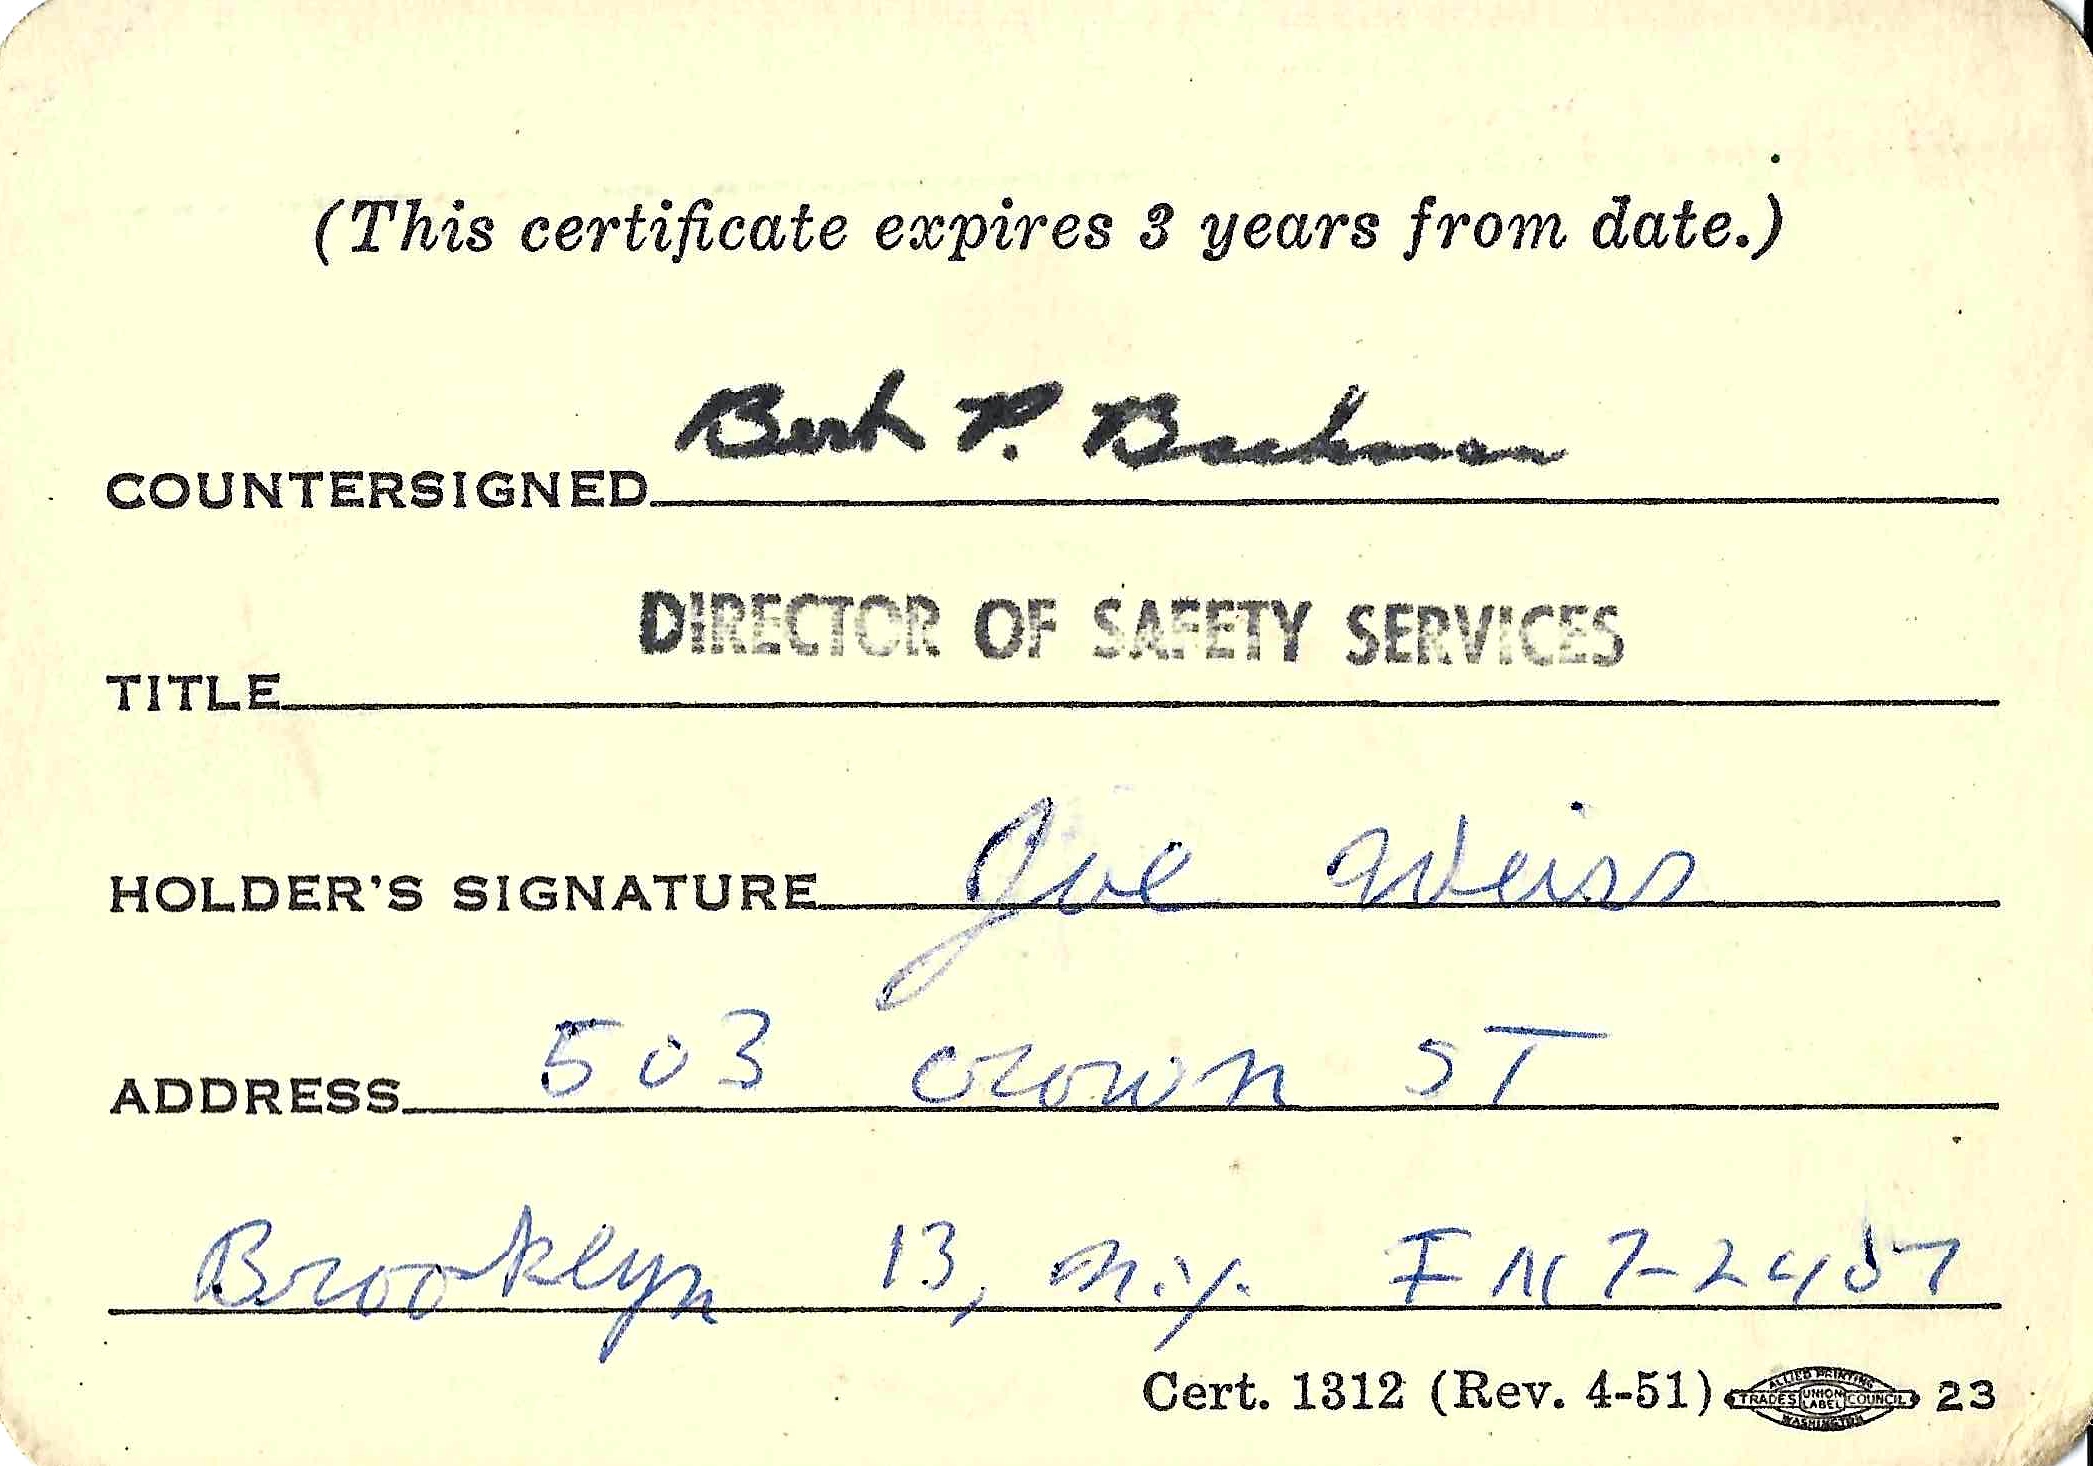 (This certificate expires 3 years from date.)
COUNTERSIGNED Bert P. Buckman
TITLE DIRECTOR OF SAFETY SERVICES
HOLDER'S SIGNATURE Joe Weiss
ADDRESS 503 Crown ST
Brooklyn 13, N.Y. IN 7-2457
Cert. 1312 (Rev. 4-51) ALLIED PRINTING TRADES UNION LABEL COUNCIL WASHINGTON 23